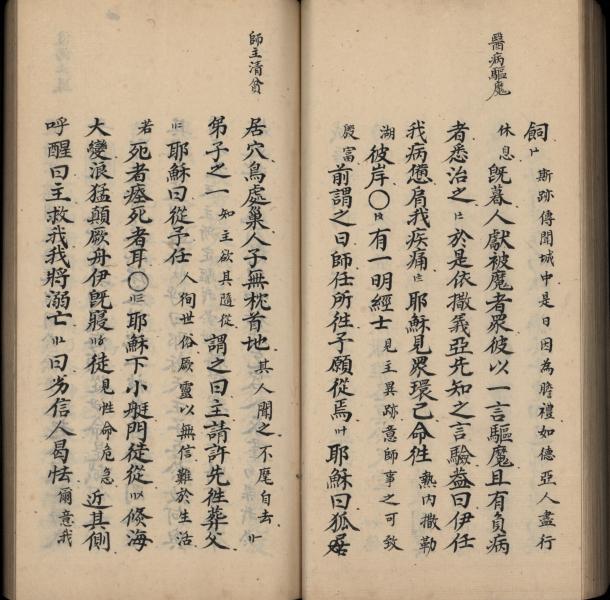 醫病驅魔
飼 斯跡傳聞城中是日因為瞻禮如德亞人盡行
休息既暮人獻被魔者眾彼以一言驅魔且有負病
者悉治之 於是依撒義亞先知之言驗葢曰伊任
我病憊肩我疾痛 耶穌見眾環己命徃熱內撒勒
湖彼岸〇 有一明經士見主異跡意師事之可致
殷富前謂之曰師任所徃予願從焉 耶穌曰狐
師主清貧
居穴鳥處巢人子無枕首地其人聞之不麾自去
弟子之一如主欲其隨從謂之曰主請許先徃葬父
耶穌曰從予任人徇世俗厥靈以無信難於生活
若死者瘞死者耳〇 耶穌下小艇門徒從 倏海
大變浪猛顛厥舟伊既寢 徒見性命危急近其側
呼醒曰主救我我將溺亡 曰劣信人曷怯爾意我